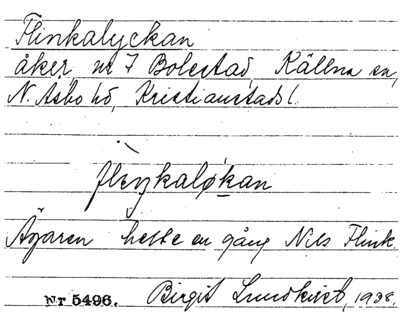 Flinkalyckan
åker nr 7 Bolestad, Källna sn,
N. Åsbo hd, Kristianstads l.
fleŋkaløkan
Ägaren hette en gång Nils Flink.
Nr 5496. Birgit Lundkvist, 1938.